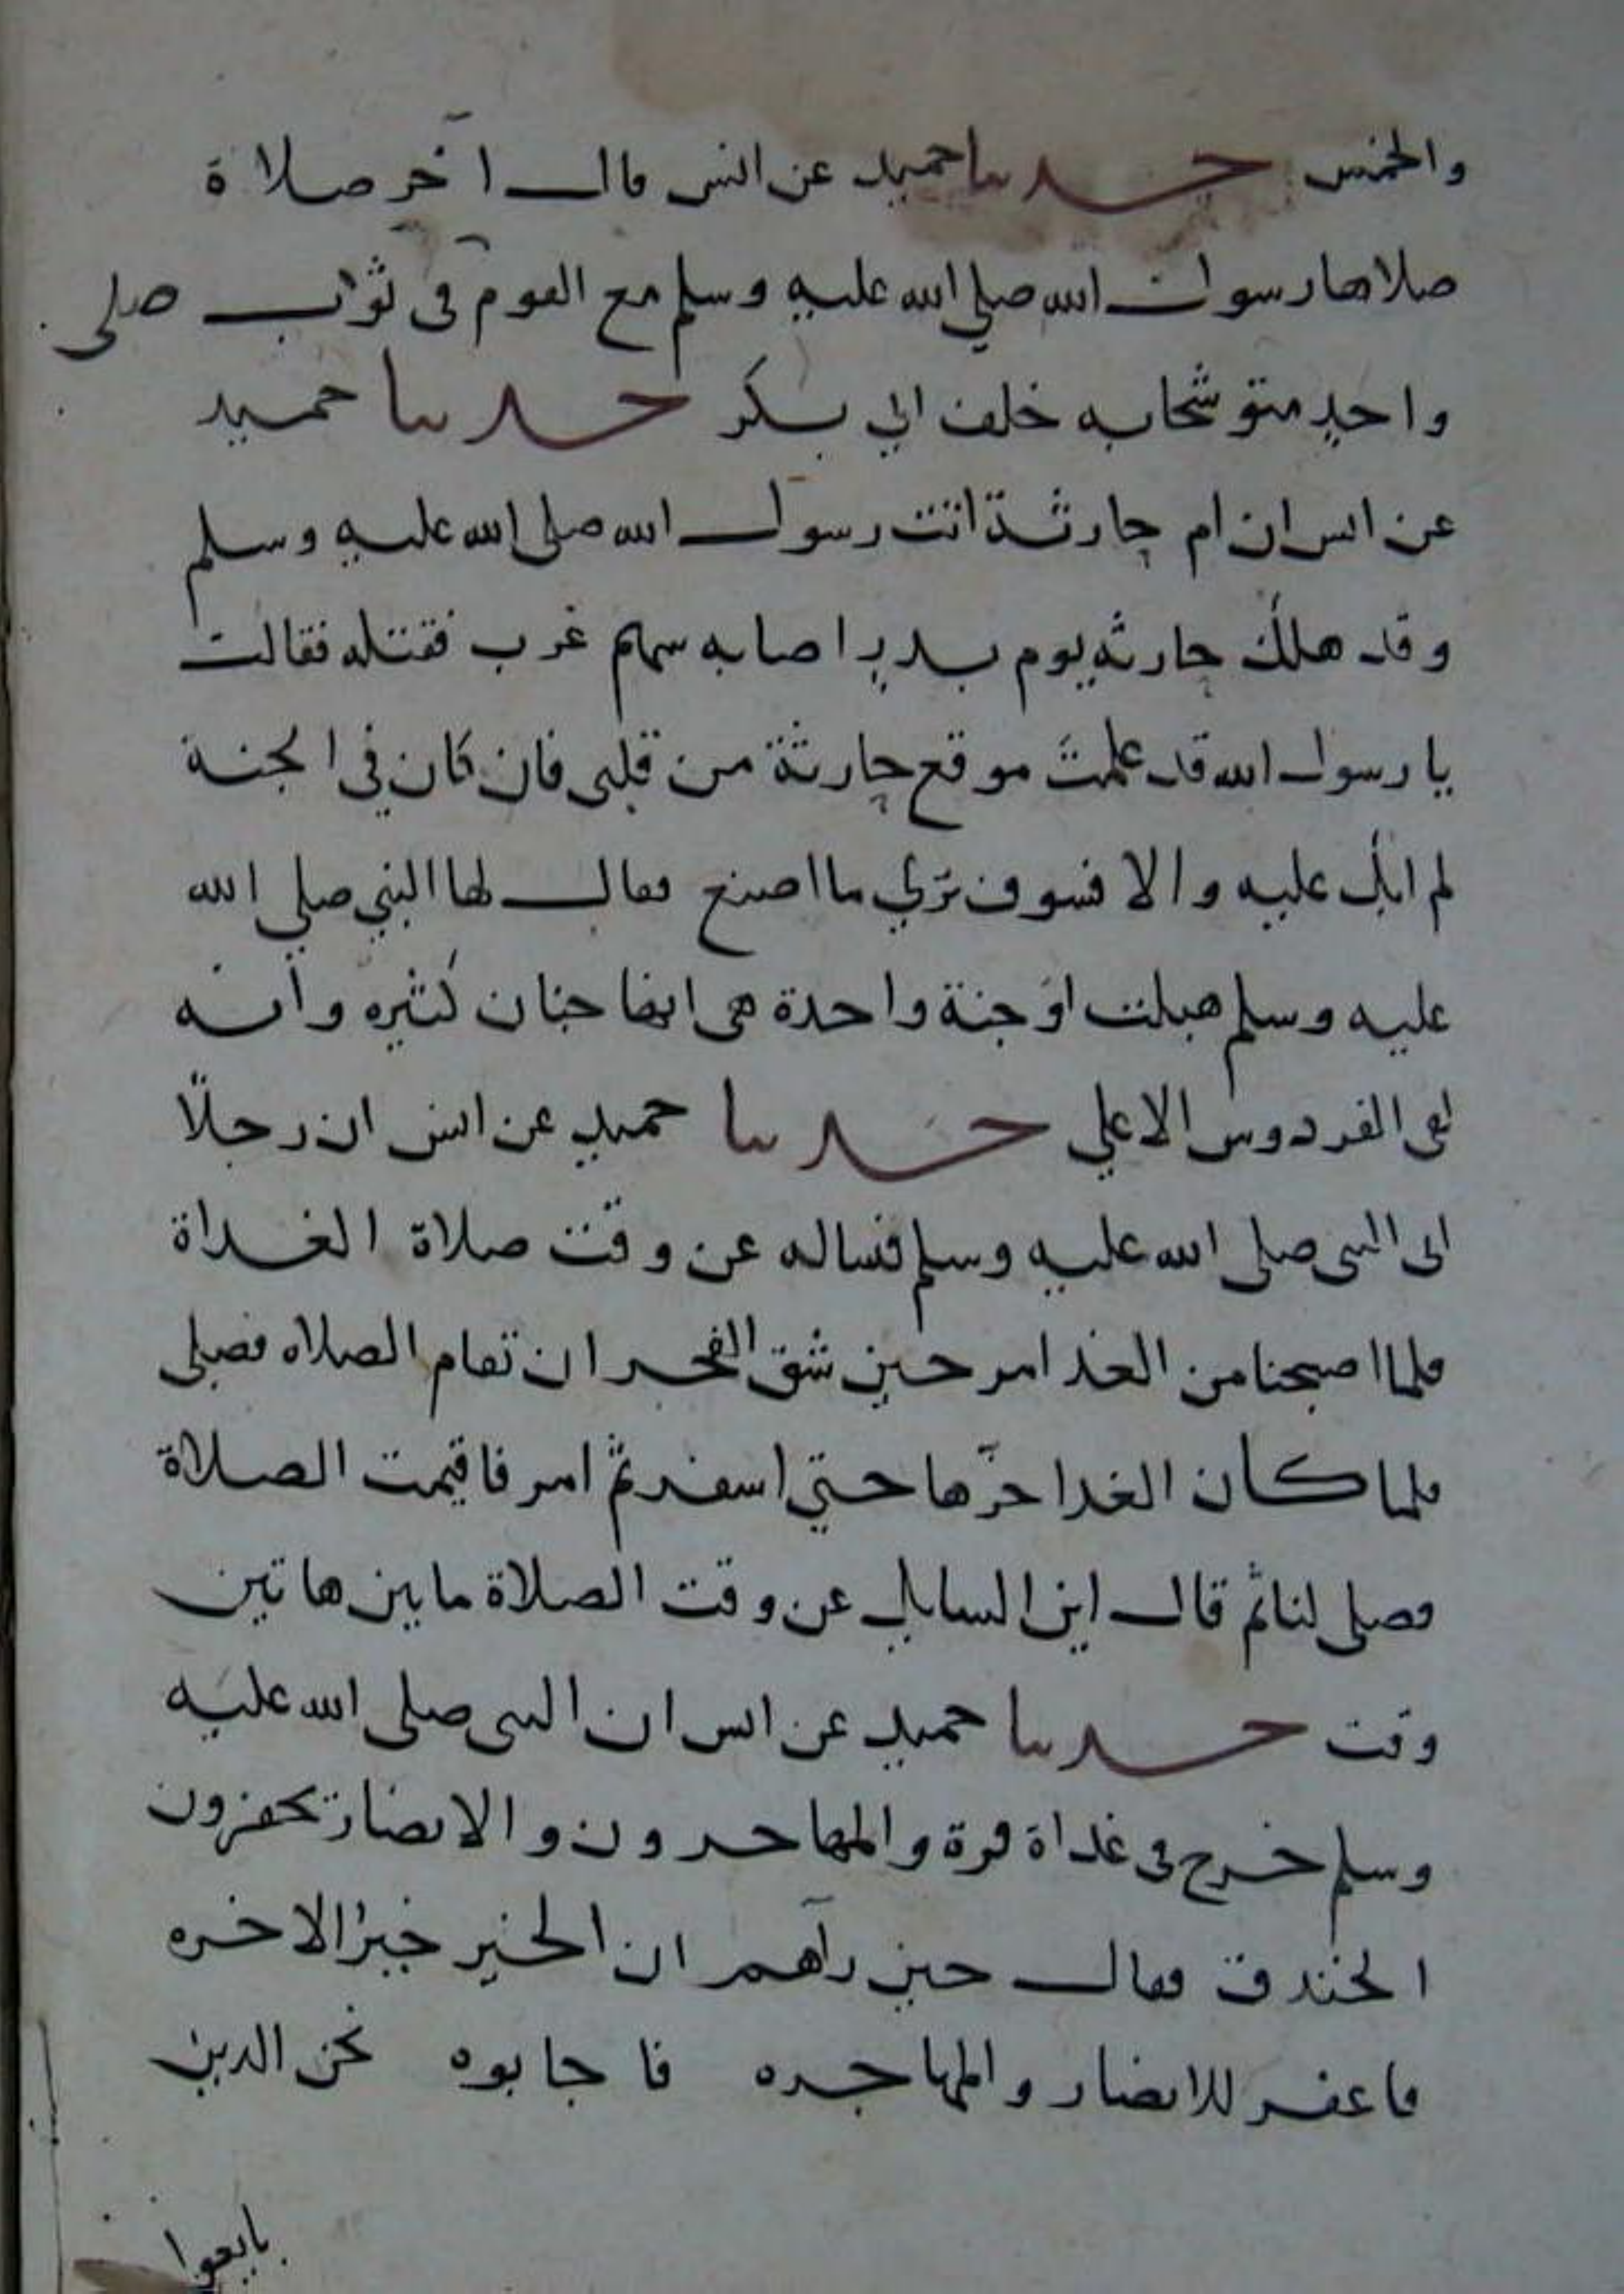 والخمس حدثنا حميد عن انس قال آخر صلاة
صلاها رسول الله صلى الله عليه وسلم مع القوم في ثوب صلى
واحد متوشحا به خلف ابي بكر حدثنا حميد
عن انس ان ام حارثة اتت رسول الله صلى الله عليه وسلم
وقد هلك حارثه يوم بدر اصابه سهم غرب فقتله فقالت
يا رسول الله قد علمت موقع حارثة من قلبى فان كان في الجنة
لم ابك عليه والا فسوف تري ما اصنع فقال لها النبي صلي الله
عليه وسلم هبلت اوَجنة واحدة هى انها جنان كثيره وانه
لفى الفردوس الاعلي حدثنا حميد عن انس ان رجلاً
اتى النبى صلى الله عليه وسلم فساله عن وقت صلاة الغداة
فلما اصبحنا من الغد امر حين شق الفجر ان تقام الصلاه فصلى
فلما كان الغد اخرها حتي اسفر ثم امر فاقيمت الصلاة
فصلى لنا ثم قال اين السايل عن وقت الصلاة ما بين هاتين
وقت حدثنا حميد عن انس ان النبى صلى الله عليه
وسلم خرج في غداة قرة والمهاجرون والانصار يحفرون
الخندق فقال حين رآهم ان الخير خير الاخره
فاغفر للانصار والمهاجره فاجابوه نحن الذين
بايعوا